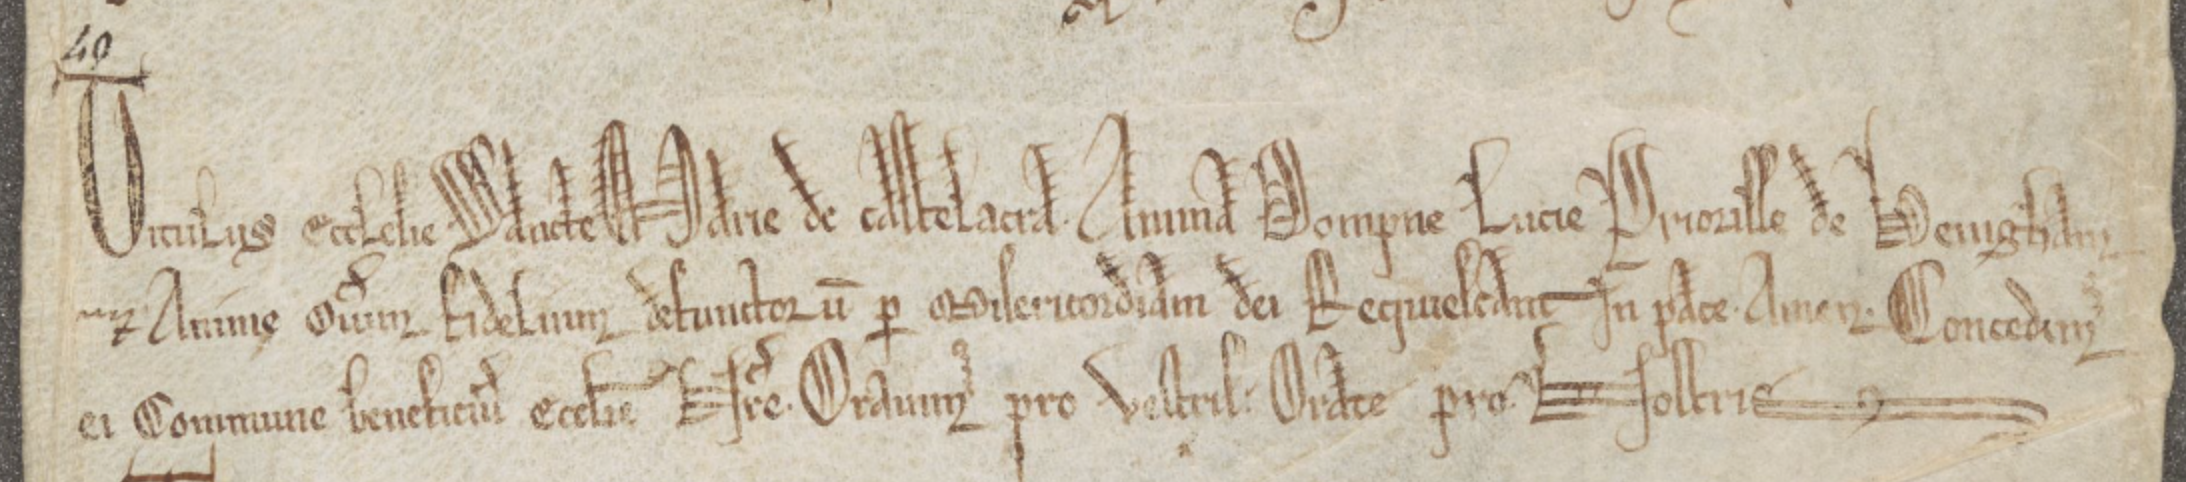 49
Titulus ecclesie Sancte Marie de castelacra. Anima Dompne Lucie Priorisse de Heningham
⁊ Anime Oīum fidelium defunctorū ꝑ Misericordiam dei Requiescant In pace. Amen. Concedim᷒
ei Commune beneficiū ecclīe Nr̄e. Orauim᷒ pro vestris: Orate pro Nostris